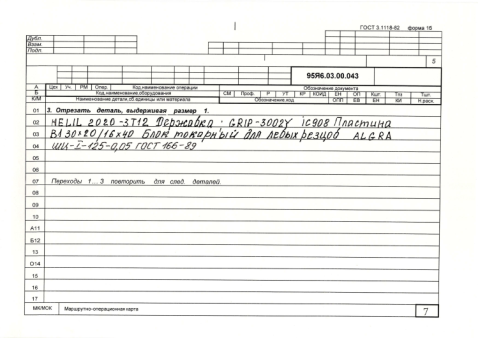 ГОСТ 3.1118-82 форма 1б
Дубл.
Взам.
Подл.
5
95Я6.03.00.043
А Цех Уч. РМ Опер. Код, наименование операции Обозначение документа
Б Код, наименование, оборудования СМ Проф. Р УТ КР КОИД ЕН ОП Кшт. Тпз Тшт.
К/М Наименование детали, сб.единицы или материала Обозначение, код ОПП ЕВ ЕН КИ Н.расх.
01 3. Отрезать деталь, выдерживая размер 1.
02 HELIL 2020-3T12 Державка. GRIP-3002Y ic908 Пластина
03 B130×20/16×40 Блок токарный для левых резцов ALGRA
04 ШЦ-I-125-0,05 ГОСТ 166-89
05
06
07 Переходы 1...3 повторить для след. деталей.
08
09
10
А11
Б12
13
О14
15
16
17
МК/МОК Маршрутно-операционная карта 7